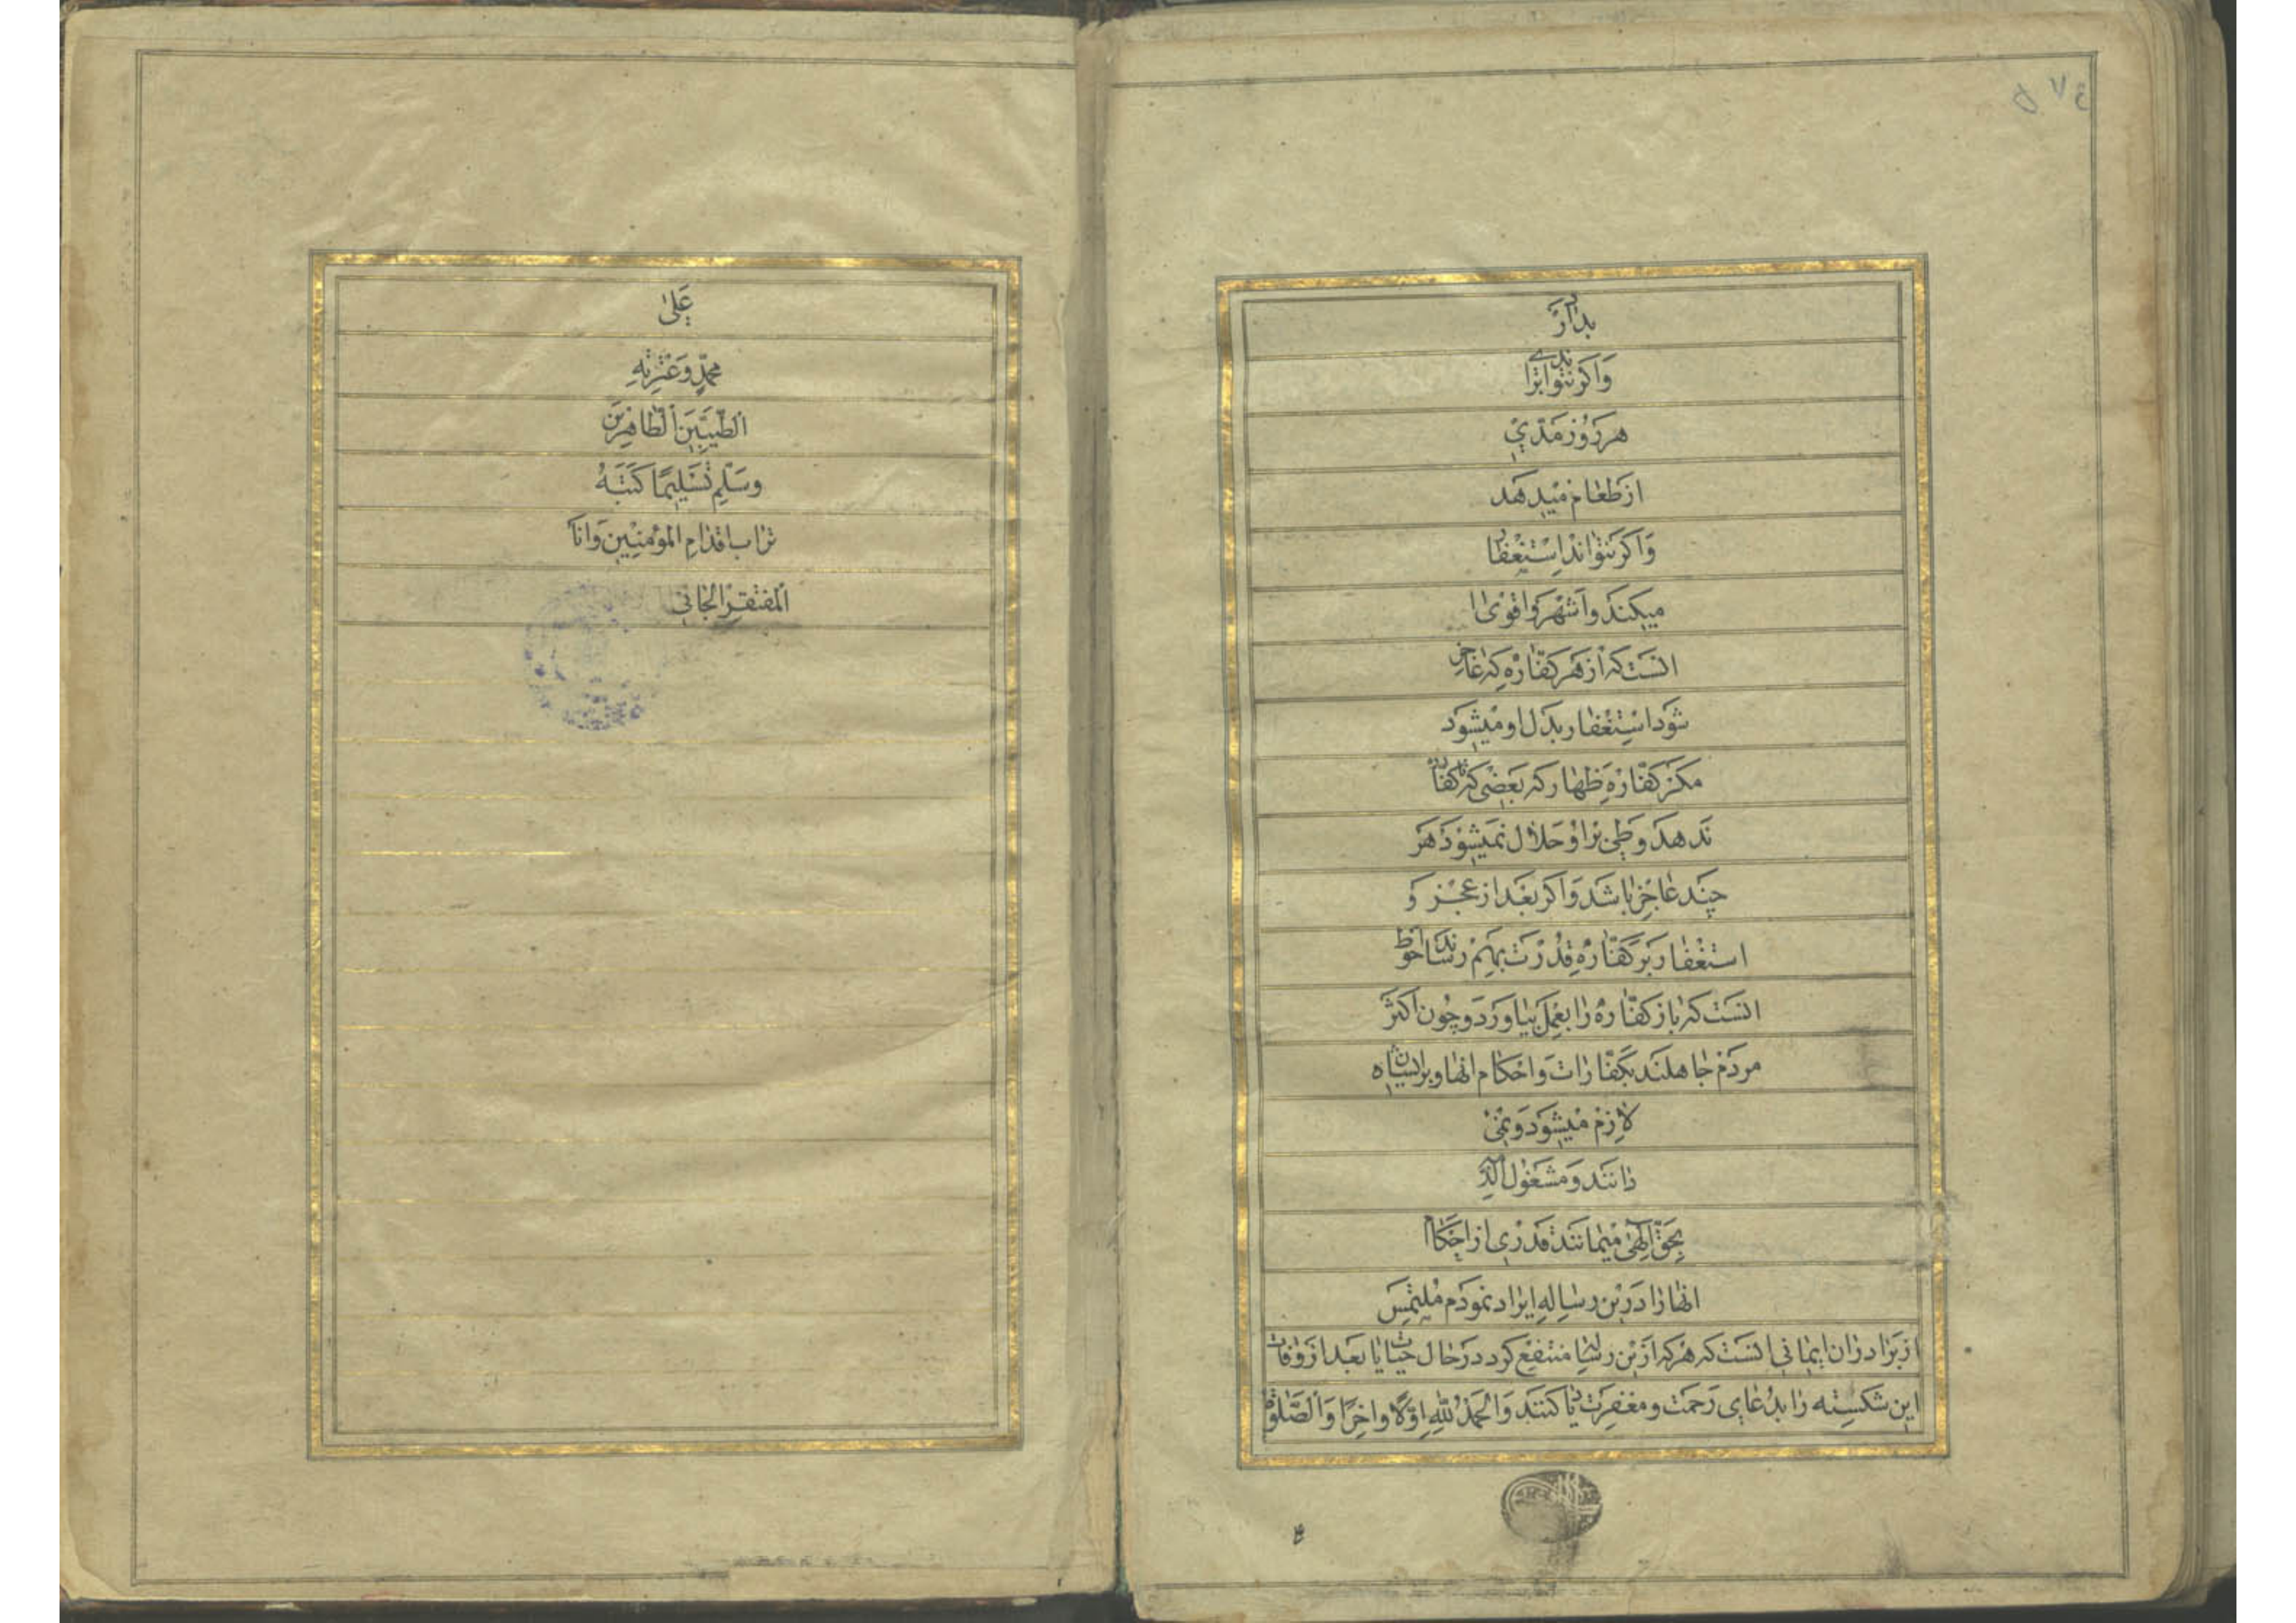 بدارد
و اکر نتواند برای
هر روز مدّی
از طعام میدهد
و اکر نتواند استغفار
میکند و اشهر و اقوی
انست که از هر کفّاره که عاجز
شود استغفار بدل او میشود
مکر کفّاره ظهار که بعضی که تا کفاره
ندهد وطی بر او حلال نمیشود هر
چند عاجز باشد و اکر بعد از عجز و
استغفار بر کفّاره قدرت بهم رساند احوط
انست که باز کفّاره را بعمل بیاورد و چون اکثر
مردم جاهلند بکفّارات و احکام انها و بر ایشان
لازم میشود و نمی
دانند و مشغول الذمه
بحقّ الهی میمانند قدری از احکام
انها را در این رساله ایراد نمودم ملتمس
از برادران ایمانی انست که هرکه از این رساله منتفع کردد در حال حیات یا بعد از وفات
این شکسته را بدعای رحمت و مغفرت یاد کنند و الحمد لله اوّلا و اخرا و الصّلوة
علی
محمّد و عترته
الطّیّبین الطّاهرین
و سلّم تسلیما کتبه
تراب اقدام المؤمنین و انا
المفتقر الجانی